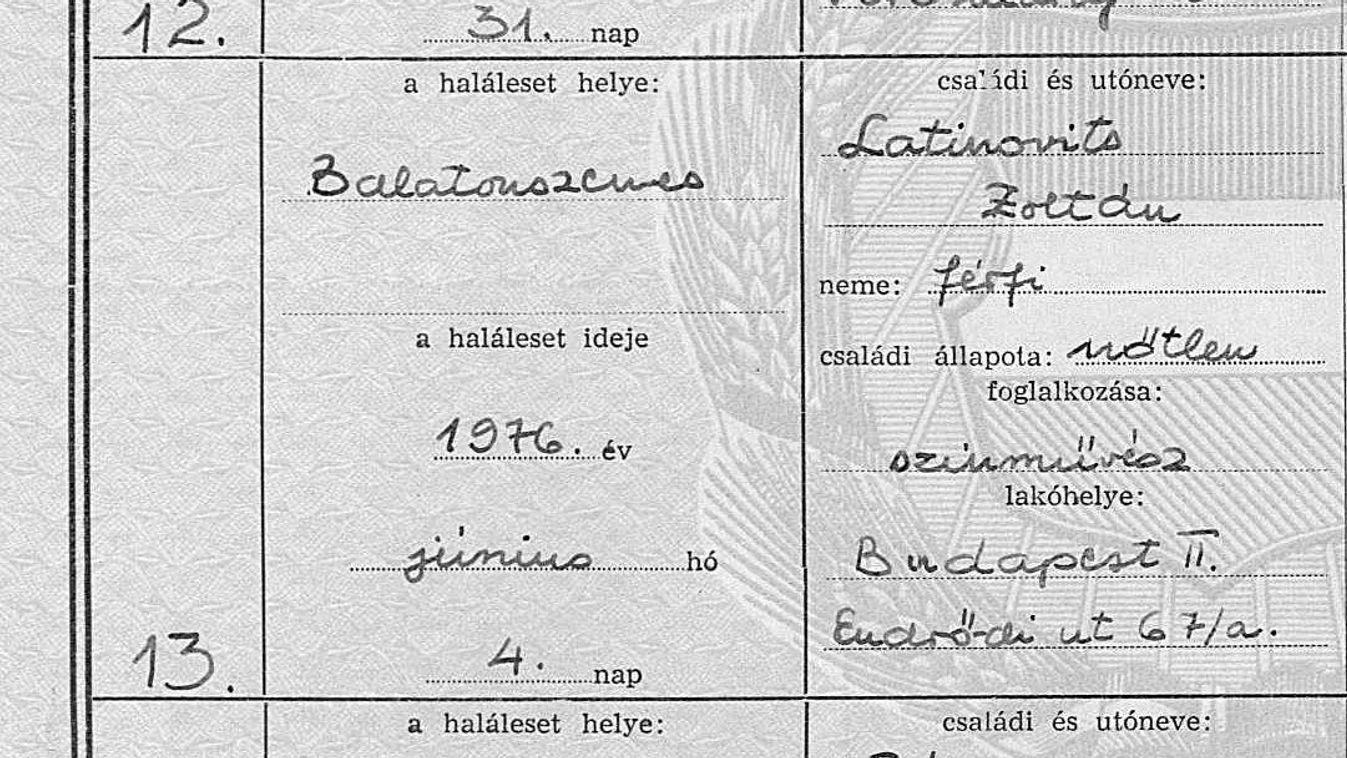 12.
31. nap
a haláleset helye:
Balatonszemes
a haláleset ideje
1976. év
június hó
13.
4. nap
családi és utóneve:
Latinovits
Zoltán
neme: férfi
családi állapota: nőtlen
foglalkozása:
szinművész
lakóhelye:
Budapest II.
Endrődi ut 67/a.
a haláleset helye:
családi és utóneve: